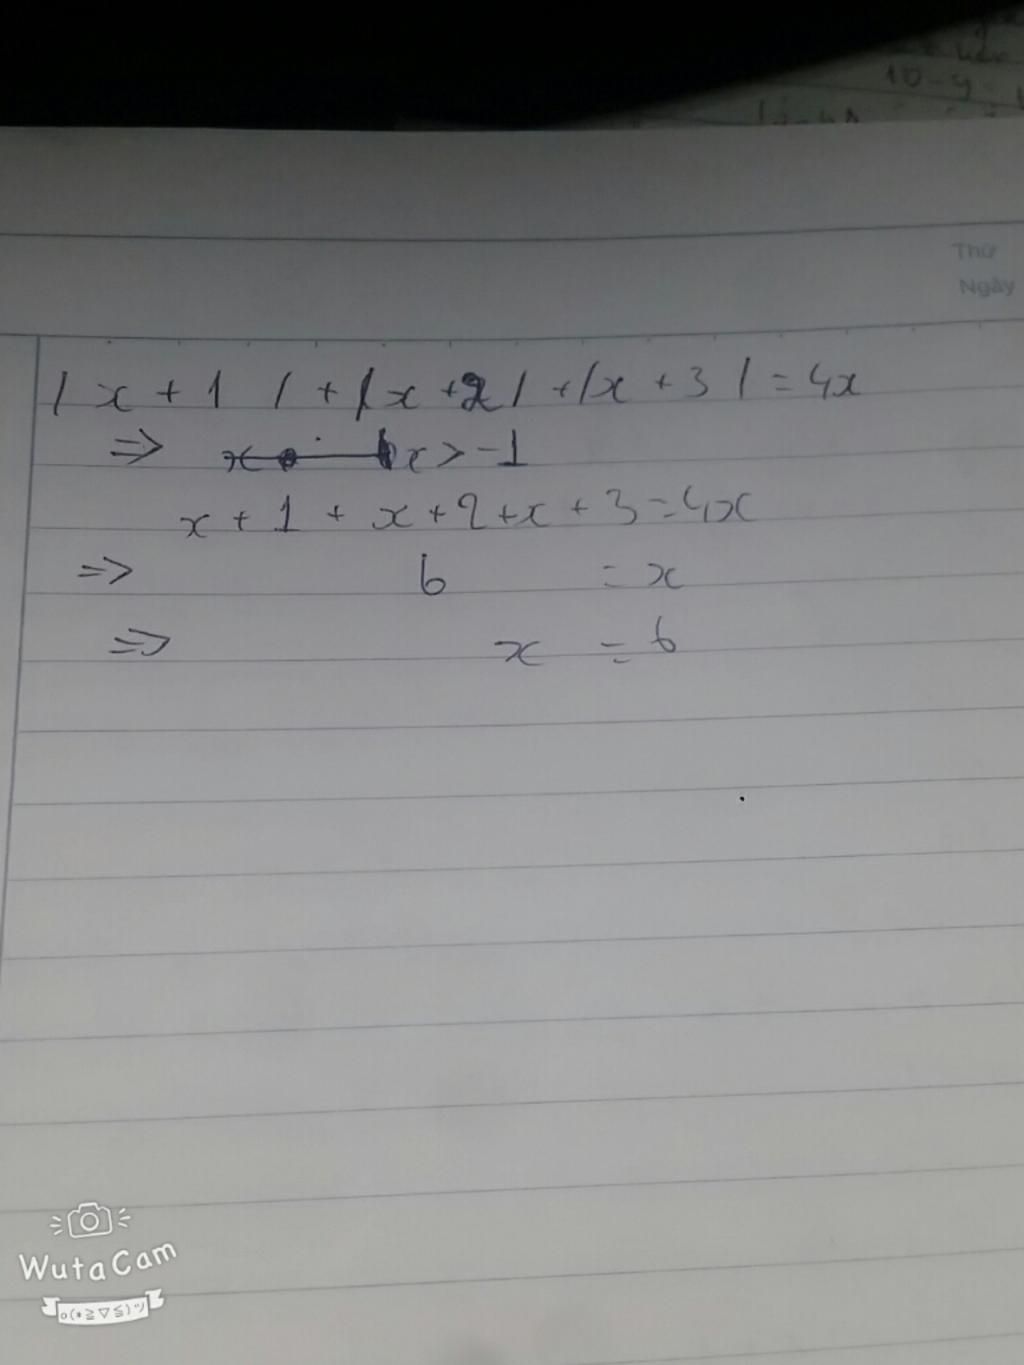 10-y
Thứ
Ngày
|x+1|+|x+2|+|x+3|=4x
=> x>-1
x+1+x+2+x+3=4x
=> 6 = x
=> x = 6
WutaCam
o(*≧▽≦)ツ